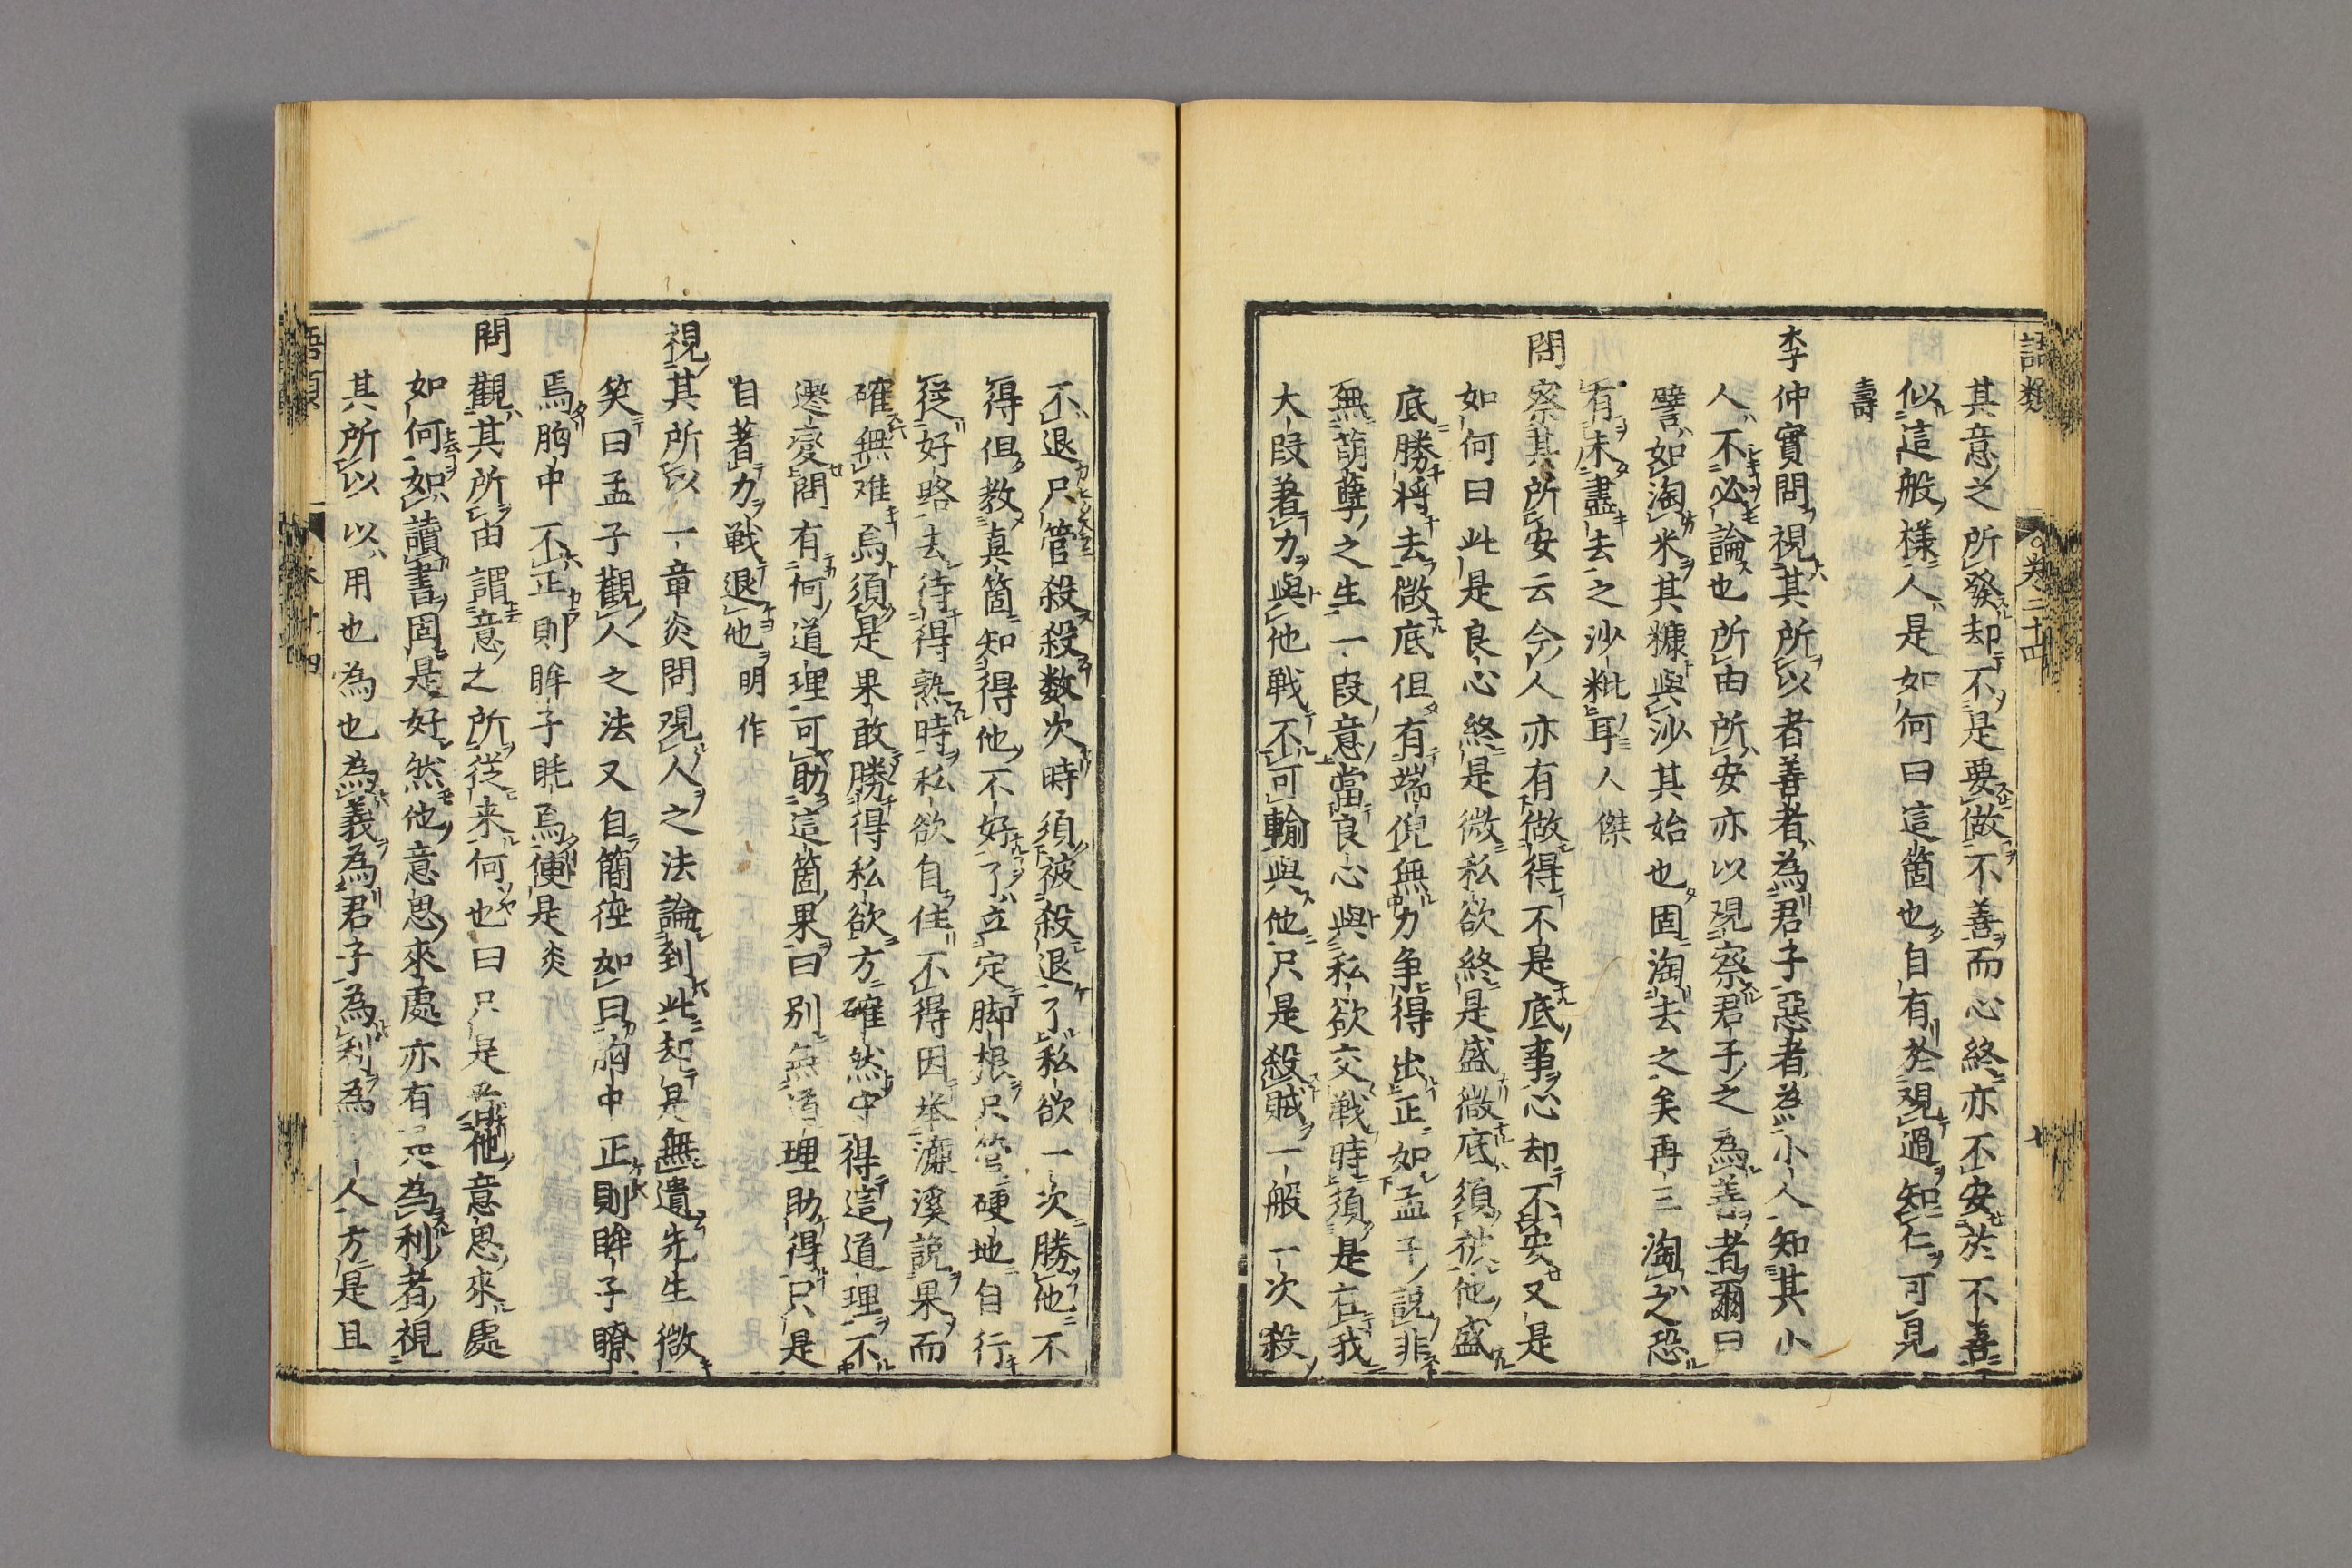 語類
卷二十四
七
其意之所發却不是要做不善而心終亦不安於不善
似這般樣人是如何曰這箇也自有於觀過知仁可見
壽
李仲實問視其所以者善者為君子惡者為小人知其小
人不必論也所由所安亦以觀察君子之為善者爾曰
譬如淘米其糠與沙其始也固淘去之矣再三淘之恐
有未盡去之沙粃耳人傑
問察其所安云今人亦有做得不是底事心却不安又是
如何曰此是良心終是微私欲終是盛微底須被他盛
底勝將去微底但有端倪無力争得出正如孟子說非
無萌孽之生一段意當良心與私欲交戰時須是在我
大段着力與他戰不可輸與他只是殺賊一般一次殺
不退只管殺殺数次時須被殺退了私欲一次勝他不
得但教真箇知得他不好了立定脚根只管硬地自行
從好路去待得熟時私欲自住不得因举濂溪說果而
確無难焉須是果敢勝得私欲方確然守得這道理不
遷変問有何道理可助這箇果曰别無道理助得只是
自著力戰退他明作
視其所以一章炎問觀人之法論到此却是無遺先生微
笑曰孟子觀人之法又自簡徑如曰胸中正則眸子瞭
焉胸中不正則眸子眊焉便是炎
問觀其所由謂意之所從来何也曰只是看他意思來處
如何如讀書固是好然他意思來處亦有是為利者視
其所以以用也為也為義為君子為利為人方是且
語類